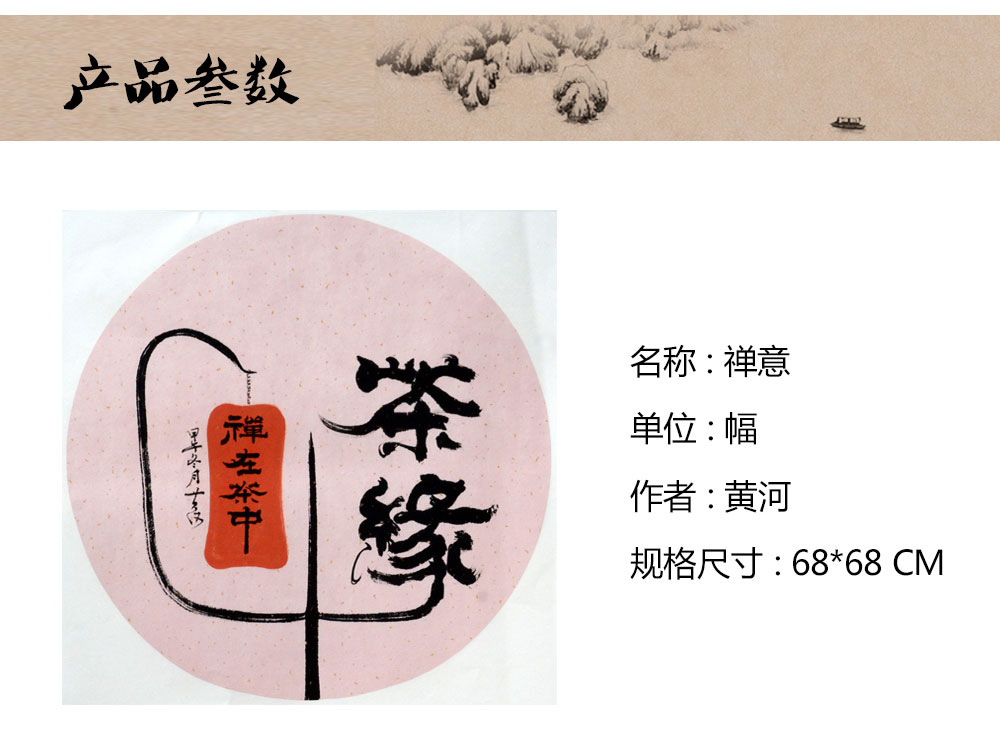 产品叁数
茶缘
禪在茶中
甲午冬月
名称 : 禅意
单位 : 幅
作者 : 黄河
规格尺寸 : 68*68 CM